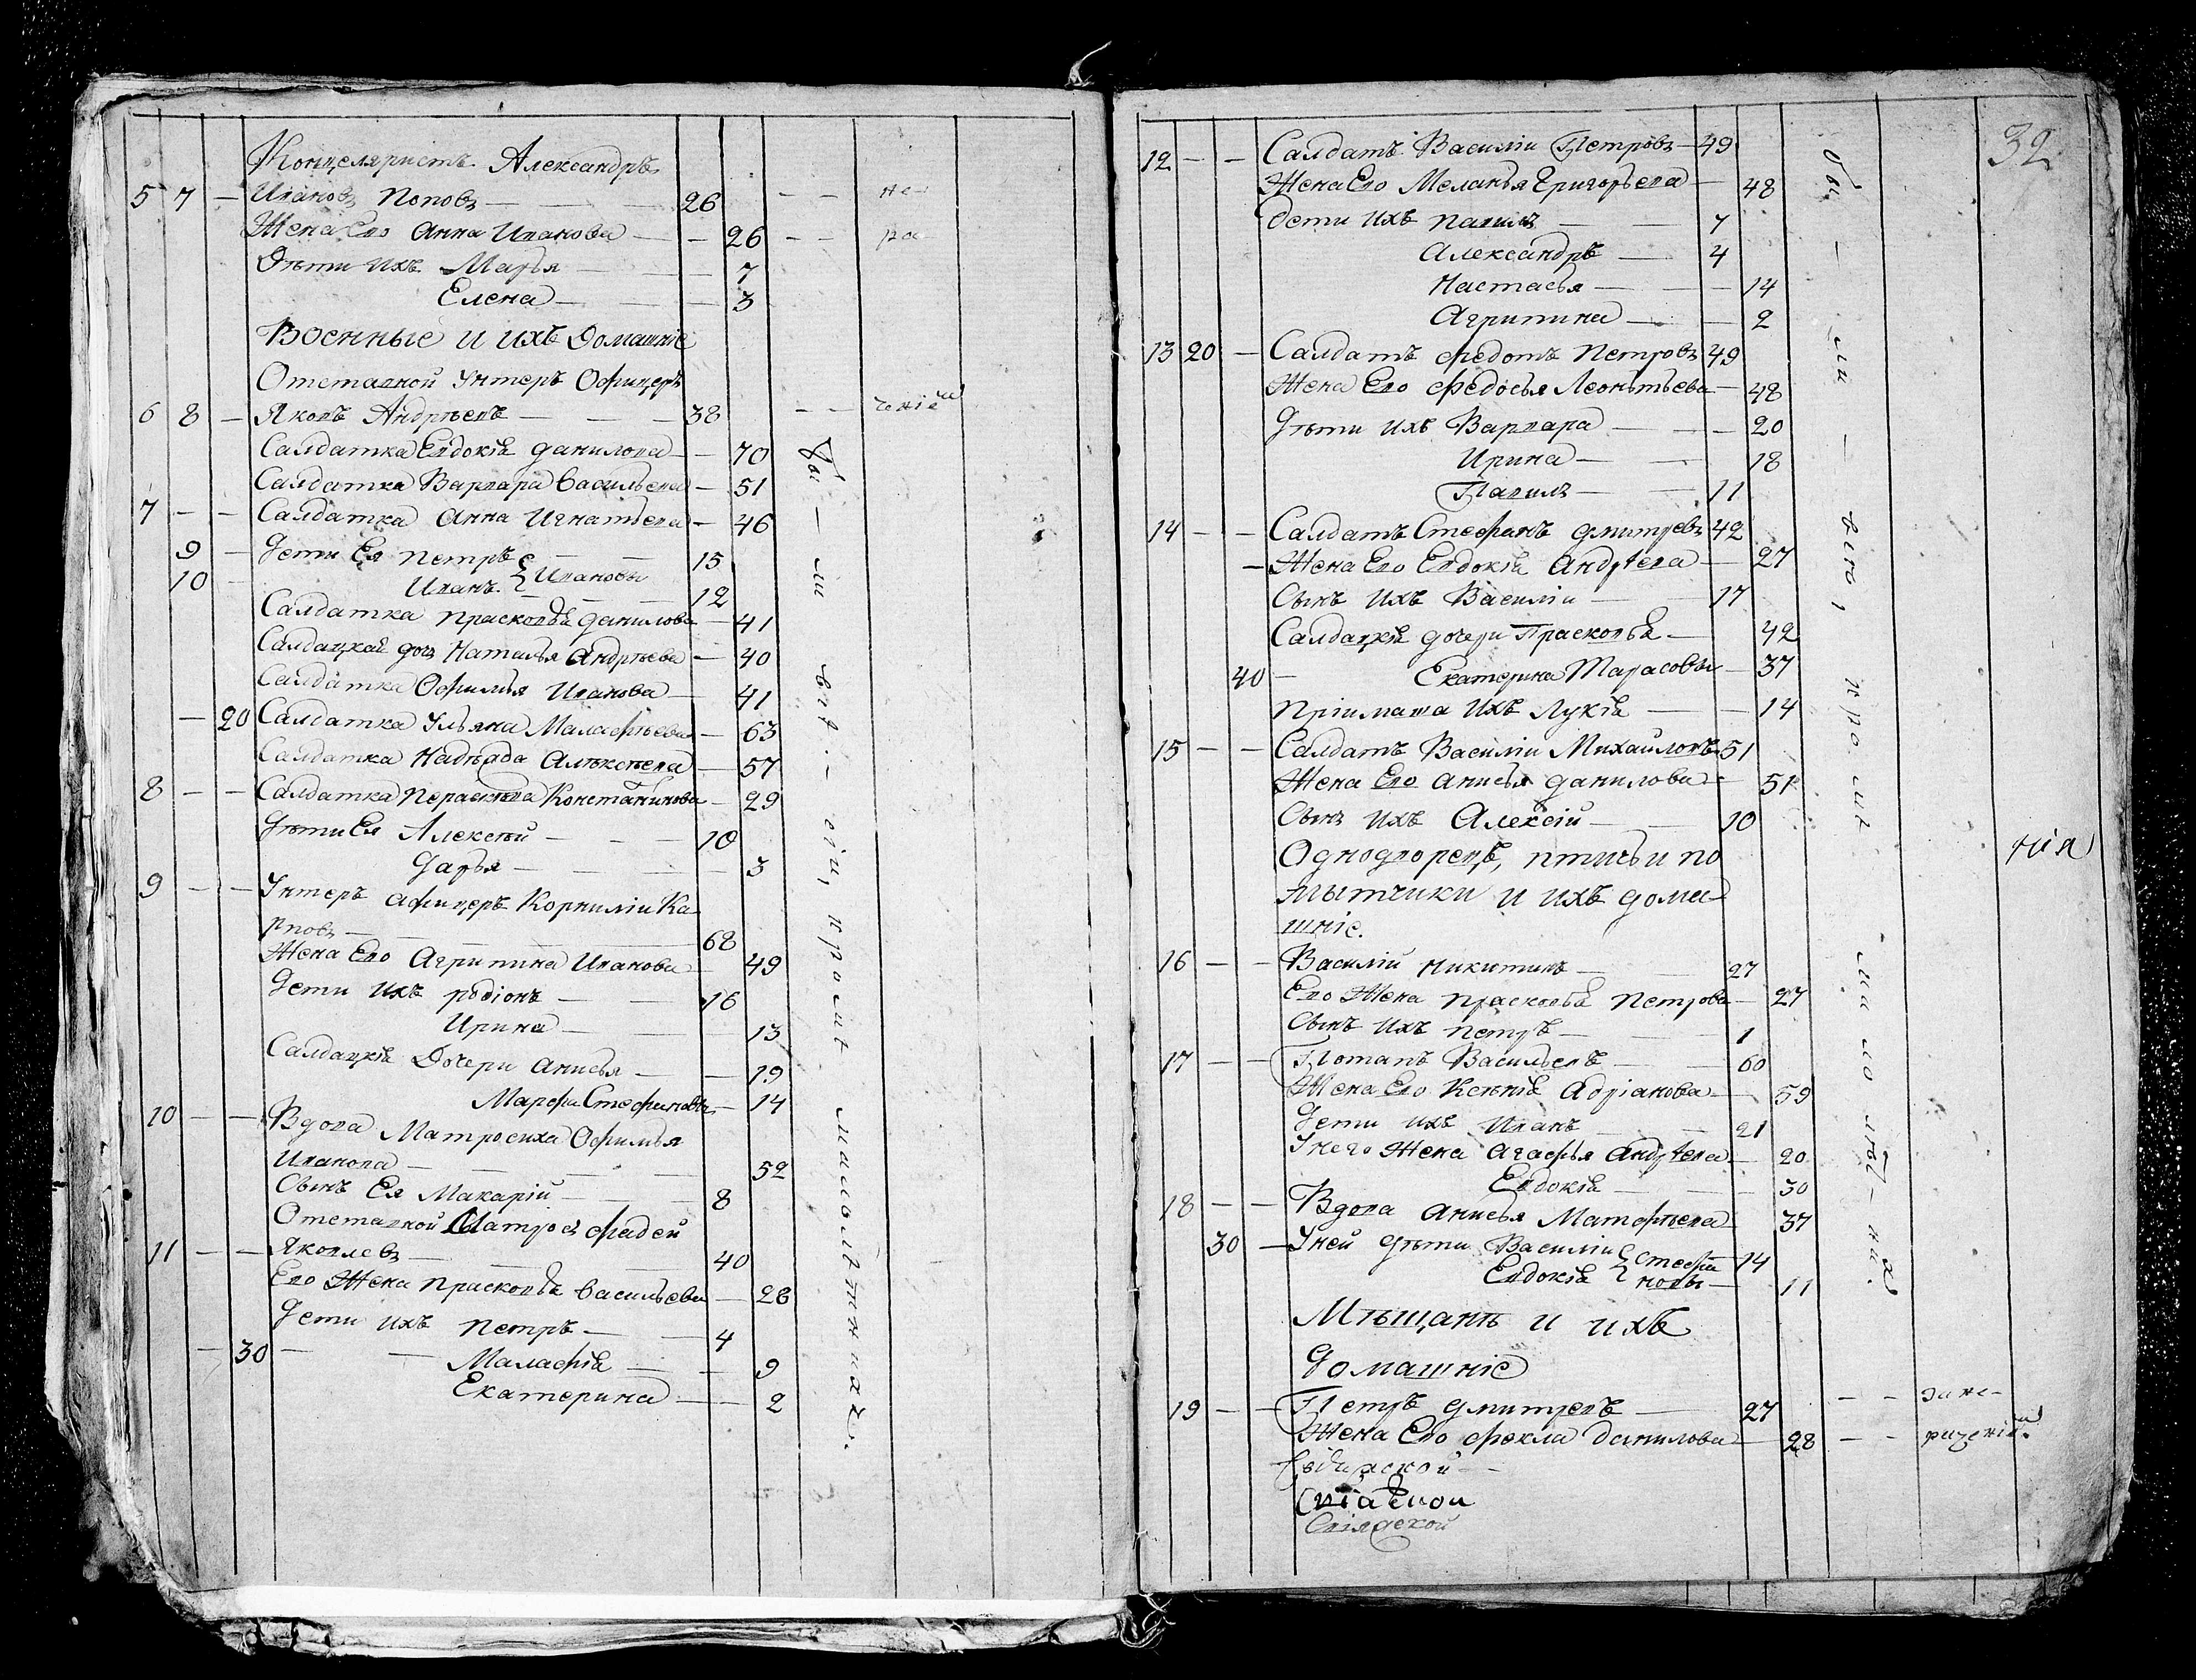 Концеляристъ Александръ
5 7 — Ивановъ Поповъ — 26 — — не
Жена Его Анна Иванова — — 26 — — ра
Дѣти ихъ Марья — — 7
Елена — — 3
Военные и ихъ Домашніе
Отставной Унтеръ Офицеръ
6 8 — Яковъ Андрѣевъ — — 38 — — ченіем
Салдатка Евдокіа Данилова — — 70
Салдатка Варвара Васильева — 51
7 — — Салдатка Анна Игнатьева — 46
9 — Дети Ея Петръ — — 15
10 Иванъ } Ивановы — 12
Салдатка Прасковья Данилова — 41
Салдацкая дочь Наталья Андрѣева — 40
Салдатка Офимья Иванова — 41
— 20 Салдатка Ульяна Малафѣева — 63
Салдатка Надѣжда Алѣксѣева — 57
8 — — Салдатка Параскева Константинова — 29
Дѣти Ея Алексѣй — — 10
Дарья — — 3
9 — — Унтеръ афицеръ Корнилій Ка
рповъ — — 68
Жена Его Агрипина Иванова — 49
Дети ихъ Родіонъ — — 16
Ирина — — 13
Салдацкіа Дочери Анисья — — 19
Марфа Стефановы — 14
10 — — Вдова Матросиха Офимья
Иванова — — 52
Сынъ Ея Макарій — — 8
Отставной Матросъ Фадей
11 — — Яковлевъ — — 40
Его Жена Прасковья Васильева — 28
Дети ихъ Петръ — — 4
— 30 — — Малафіа — — 9
Екатерина — — 2
бы — ли
32
12 — — Салдатъ Василій Петровъ — 49
Жена Его Меланья Григорьева — 48
Дети ихъ Павилъ — — 7
Александръ — 4
Настасья — — 14
Агрипина — — 2
13 20 — Салдатъ Федотъ Петровъ 49
Жена Его Федосья Леонтьева — 48
Дѣти ихъ Варвара — — 20
Ирина — — 18
Павилъ — — 11
14 — — Салдатъ Стефанъ Дмитревъ 42
— Жена Его Евдокіа Андрѣева — 27
Сынъ ихъ Василій — 17
Салдацкіа дочери Прасковья — 42
40 — Екатерина Тарасовы — 37
Пріимаша ихъ Лукіа — — 14
15 — — Салдатъ Василій Михайловъ 51
Жена Его Анисья Данилова — 51
Сынъ ихъ Алексій — — 10
Однодворецъ, птичьи по
мытчики и ихъ дома
шніе.
нія
16 — — Василій Никитинъ — 27
Его Жена Прасковья Петрова — 27
Сынъ ихъ Петръ — — 1
17 — — Потапъ Васильевъ — 60
Жена Его Ксѣніа Адріанова — 59
Дети ихъ Иванъ — — 21
У него Жена Агафья Андрѣева — 20
Евдокіа — — 30
18 — — Вдова Анисья Матфѣева — 37
30 — У ней дѣти Василій } Стефа 14
Евдокіа } новы — 11
Мѣщанѣ и ихъ
Домашніе
19 — — Петръ Дмитревъ — 27 — — за не-
Жена Его Фекла Данилова — 28 — — раченіем
бы — ли